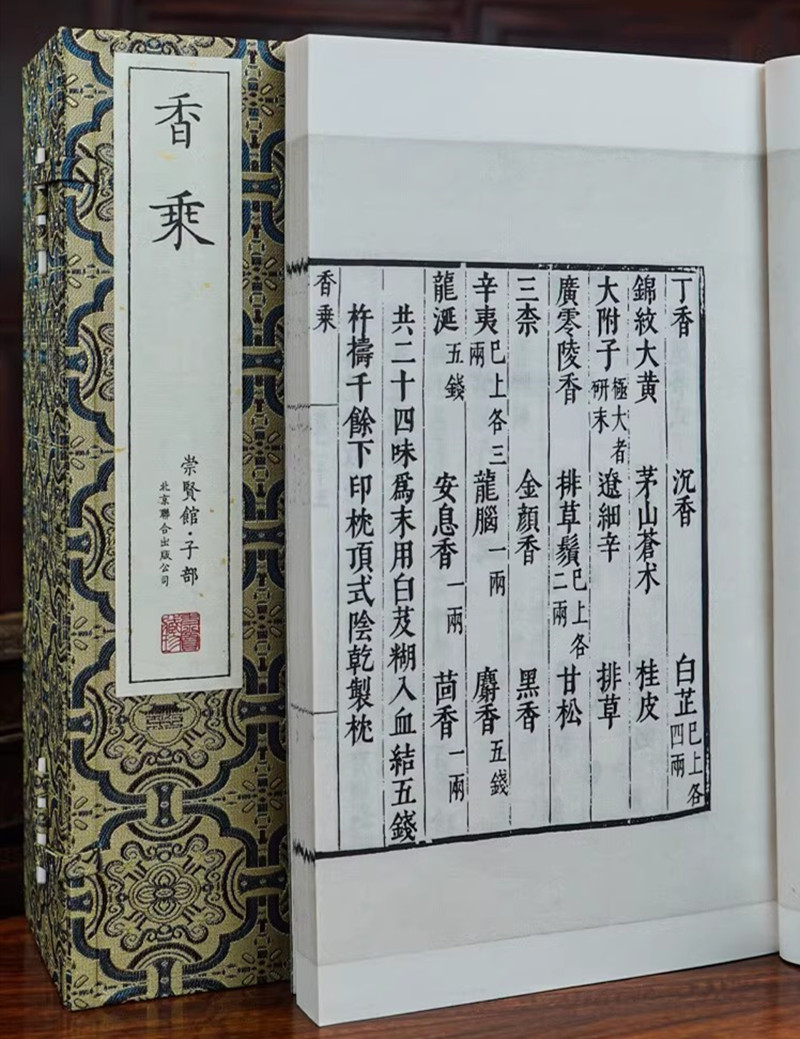 香
乗
崇賢館·子部
北京聯合出版公司
丁香 沉香 白芷巳上各四兩
錦紋大黄 茅山蒼术 桂皮
大附子極大者研末 遼細辛 排草
廣零陵香 排草鬚巳上各二兩 甘松
三柰 金顔香 黑香
辛夷巳上各三兩 龍腦一兩 麝香五錢
龍涎五錢 安息香一兩 茴香一兩
共二十四味爲末用白芨糊入血結五錢
杵檮千餘下印枕頂式陰乾製枕
香乗